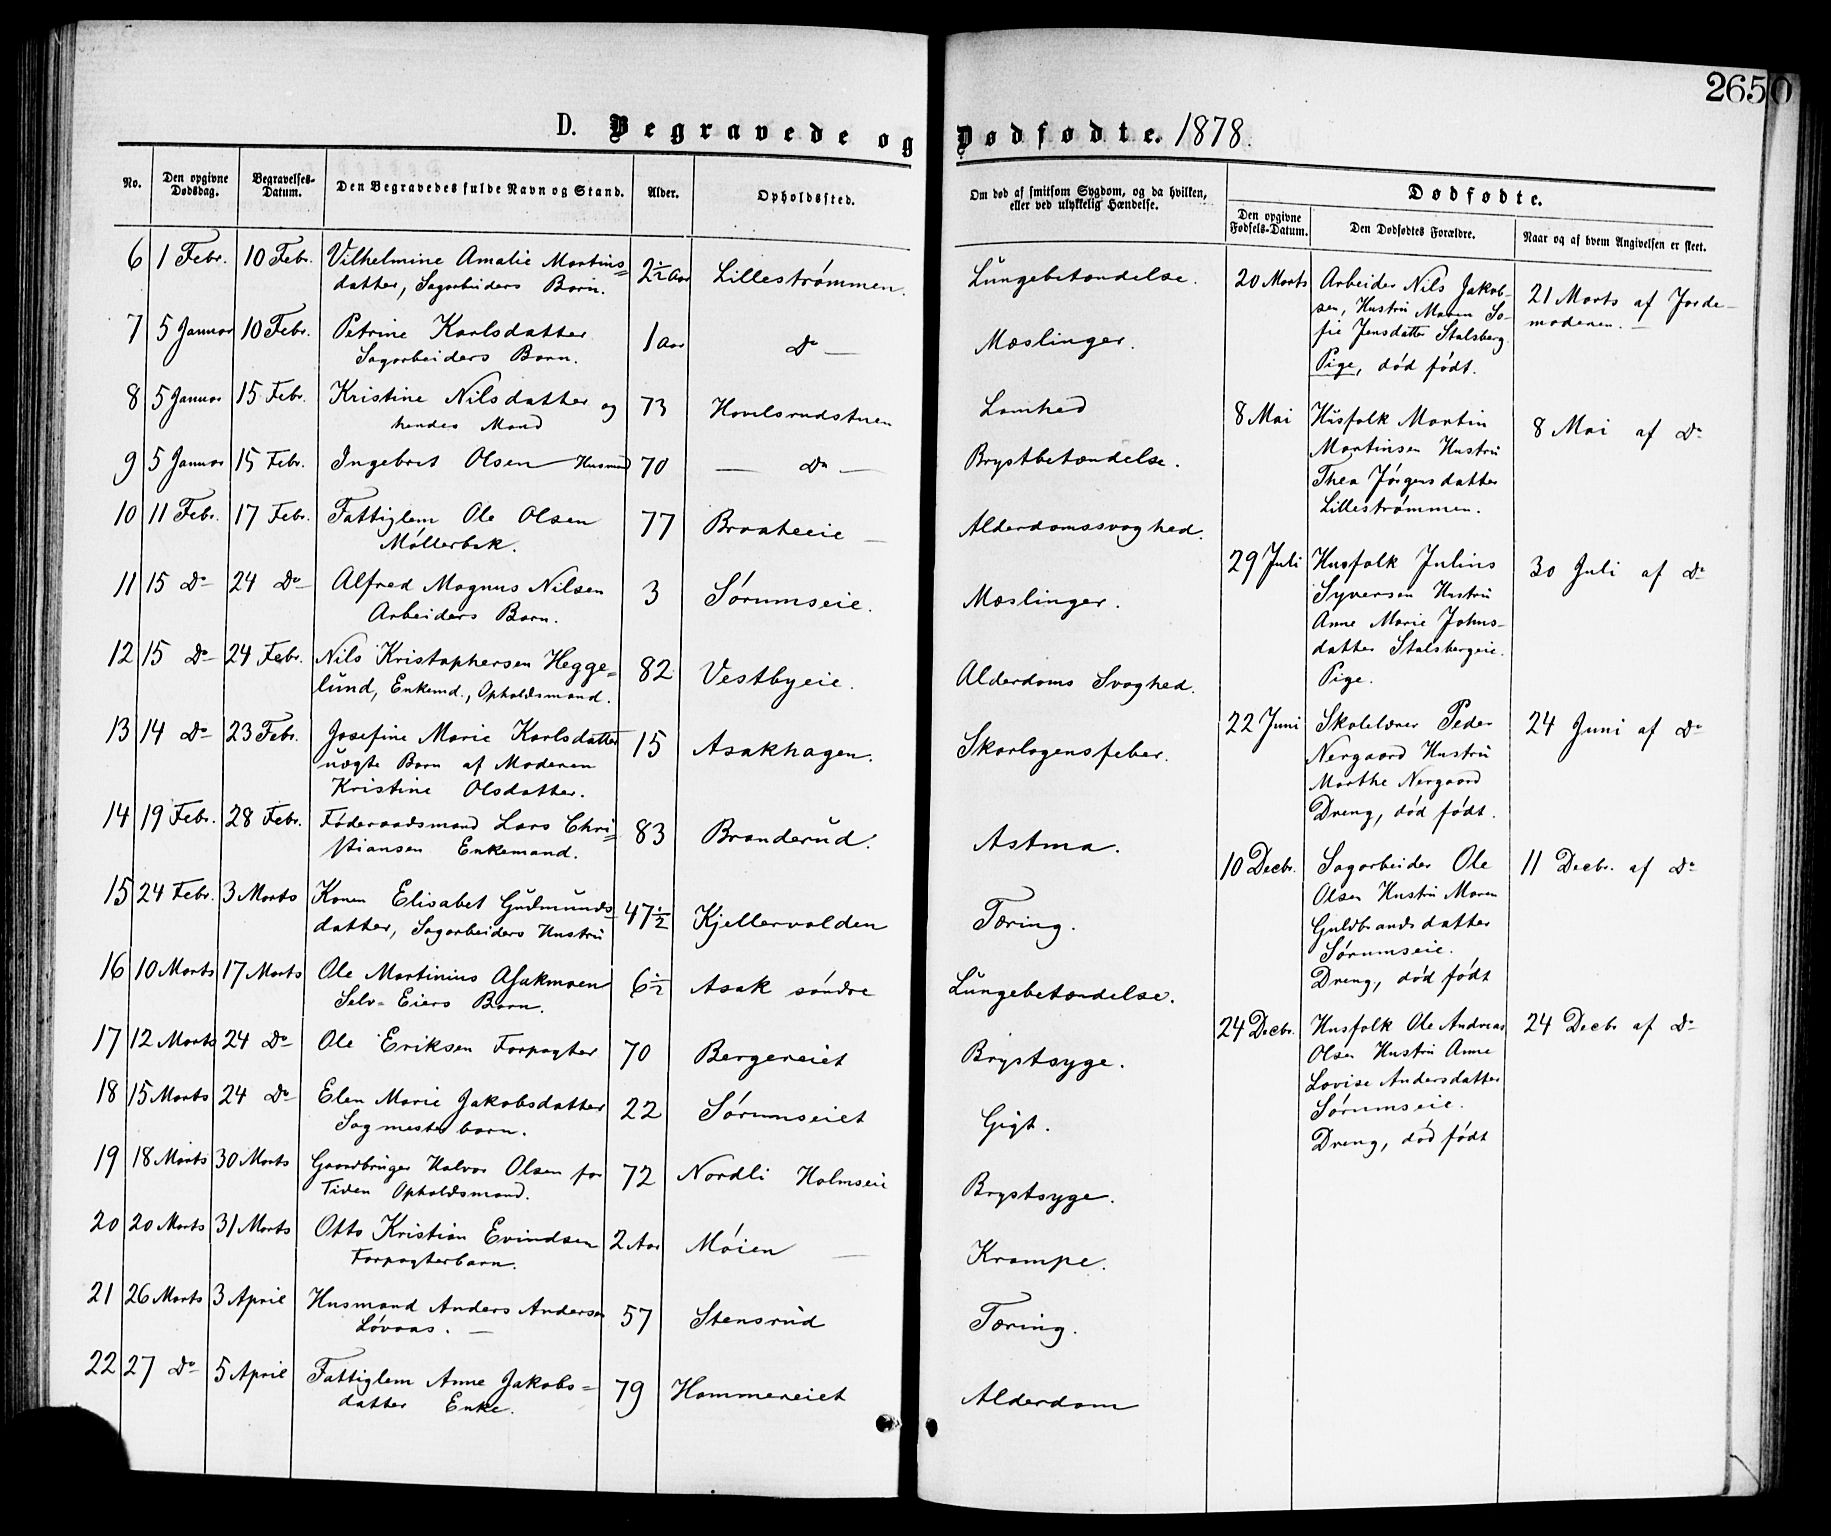 2650
D. Begravede og Dødfødte. 1878.
No.
Den opgivne Dødsdag.
Begravelses-Datum.
Den Begravedes fulde Navn og Stand.
Alder.
Opholdssted.
Om død af smitsom Sygdom, og da hvilken, eller ved ulykkelig Hændelse.
6 1 Febr. 10 Febr. Vilhelmine Amalie Martins= 2½ Aar Lillestrømmen. Lungebetændelse.
datter, Sagarbeiders Barn.
7 5 Januar 10 Febr. Petrine Karlsdatter 1 Aar Do — Mæslinger.
Sagarbeiders Barn.
8 5 Januar 15 Febr. Kristine Nilsdatter og 73 Hovelsrudstuen Lamhed
hendes Mand
9 5 Januar 15 Febr. Ingebret Olsen Husmd 70 — Do — Brystbetændelse.
10 11 Febr. 17 Febr. Fattiglem Ole Olsen 77 Braateeie — Alderdomssvaghed.
Møllerbek.
11 15 Do 24 Do Alfred Magnus Nilsen 3 Sørumseie. Mæslinger.
Arbeiders Barn.
12 15 Do 24 Febr. Nils Kristophersen Hegge= 82 Vestbyeie. Alderdoms Svaghed.
lund, Enkemd., Opholdsmand.
13 14 Do 23 Febr. Josefine Marie Karlsdatter 15 Asakhagen. Skarlagensfeber.
uægte Barn af Moderen
Kristine Olsdatter.
14 19 Febr. 28 Febr. Føderaadsmand Lars Chri= 83 Branderud. Astma.
stiansen Enkemand.
15 24 Febr. 3 Marts Konen Elisabet Gudmunds= 47½ Kjellervolden Tæring.
datter, Sagarbeiders Hustru
16 10 Marts 17 Marts Ole Martinius Asakmoen 6½ Asak søndre Lungebetændelse.
Selv-Eiers Barn.
17 12 Marts 24 Do Ole Eriksen Forpagter 70 Bergereiet Brystsyge.
18 15 Marts 24 Do Elen Marie Jakobsdatter 22 Sørumseiet Gigt.
Sagmesterbarn.
19 18 Marts 30 Marts Gaardbruger Halvor Olsen for 72 Nordli Holmseie Brystsyge.
Tiden Opholdsmand.
20 20 Marts 31 Marts Otto Kristian Evindsen 2 Aar Møien — Krampe.
Forpagterbarn.
21 26 Marts 3 April Husmand Anders Andersen 57 Stensrud Tæring.
Løvaas. —
22 27 Do 5 April Fattiglem Anne Jakobs= 79 Hammereiet Alderdom
datter Enke.
Dødfødte.
Den opgivne Fødsels-Datum.
Den Dødfødtes Forældre.
Naar og af hvem Angivelsen er skeet.
20 Marts Arbeider Nils Jakob- 21 Marts af Jorde-
sen, Hustru Maren So- moderen. —
fie Jensdatter Stalsberg.
Pige, død født.
8 Mai Husfolk Martin 8 Mai af Do
Martinsen Hustru
Thea Jørgensdatter
Lillestrømmen.
29 Juli Husfolk Julius 30 Juli af Do
Syversen Hustru
Anne Marie Johns-
datter Stalsbergeie.
Pige.
22 Juni Skolelærer Peder 24 Juni af Do
Nergaard Hustru
Marthe Nergaard
Dreng, død født.
10 Decbr. Sagarbeider Ole 11 Decbr. af Do
Olsen Hustru Maren
Guldbrandsdatter
Sørumseie.
Dreng, død født
24 Decbr. Husfolk Ole Andreas 24 Decbr af Do
Olsen Hustru Anne
Lovise Andersdatter
Sørumseie.
Dreng, død født